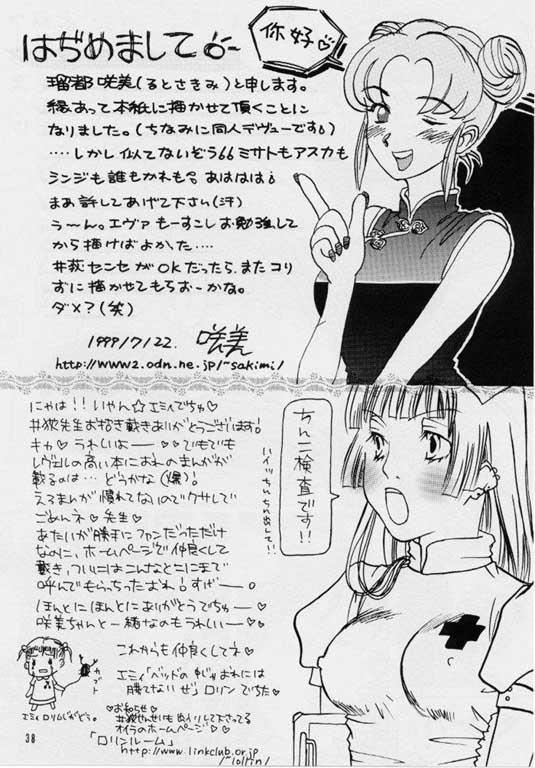 はぢめまして
你好♡
瑠都咲美(るとさきみ)と申します。
縁あって本紙に描かせて頂くことに
なりました。(ちなみに同人デヴューです)
‥‥しかし似てないぞう66ミサトもアスカも
シンジも誰もかれも。あははは
まあ許してあげて下さい(汗)
う〜ん。エヴァもーすこしお勉強して
から描けばよかった‥‥
井荻センセがOKだったら、またコリ
ずに描かせてもらおーかな。
ダメ?(笑)
1999/7/22. 咲美
http://www2.odn.ne.jp/~sakimi/
にゃは!!いやん☆エミィでちゅ♡
先生お招き戴きありがとうございます!
キャ♡うれしいよー♡♡でもでも
レヴェルの高い本におれのまんがが
載るのは…どうかな(爆)!
えろまんが慣れてないのでクサしてて
ごめんネ♡先生♡
あたいが勝手にファンだっただけ
なのに、ホームページで仲良くして
戴き、ついにはこんなとこにまで
呼んでもらっちったおれ!すげー。
ほんとにほんとにありがとうでちゅー♡
咲美ちゃんと一緒なのもうれしいー♡
これからも仲良くしてネ♡
エミィ「ベッドの中じゃおれには
勝てないぜ」ロリンでちた♡
♡お知らせ♡
オイラのホームページ♡♡
「ロリンルーム」
http://www.linkclub.or.jp
/~lollin/
カブト
ちんこ検査です!!
38